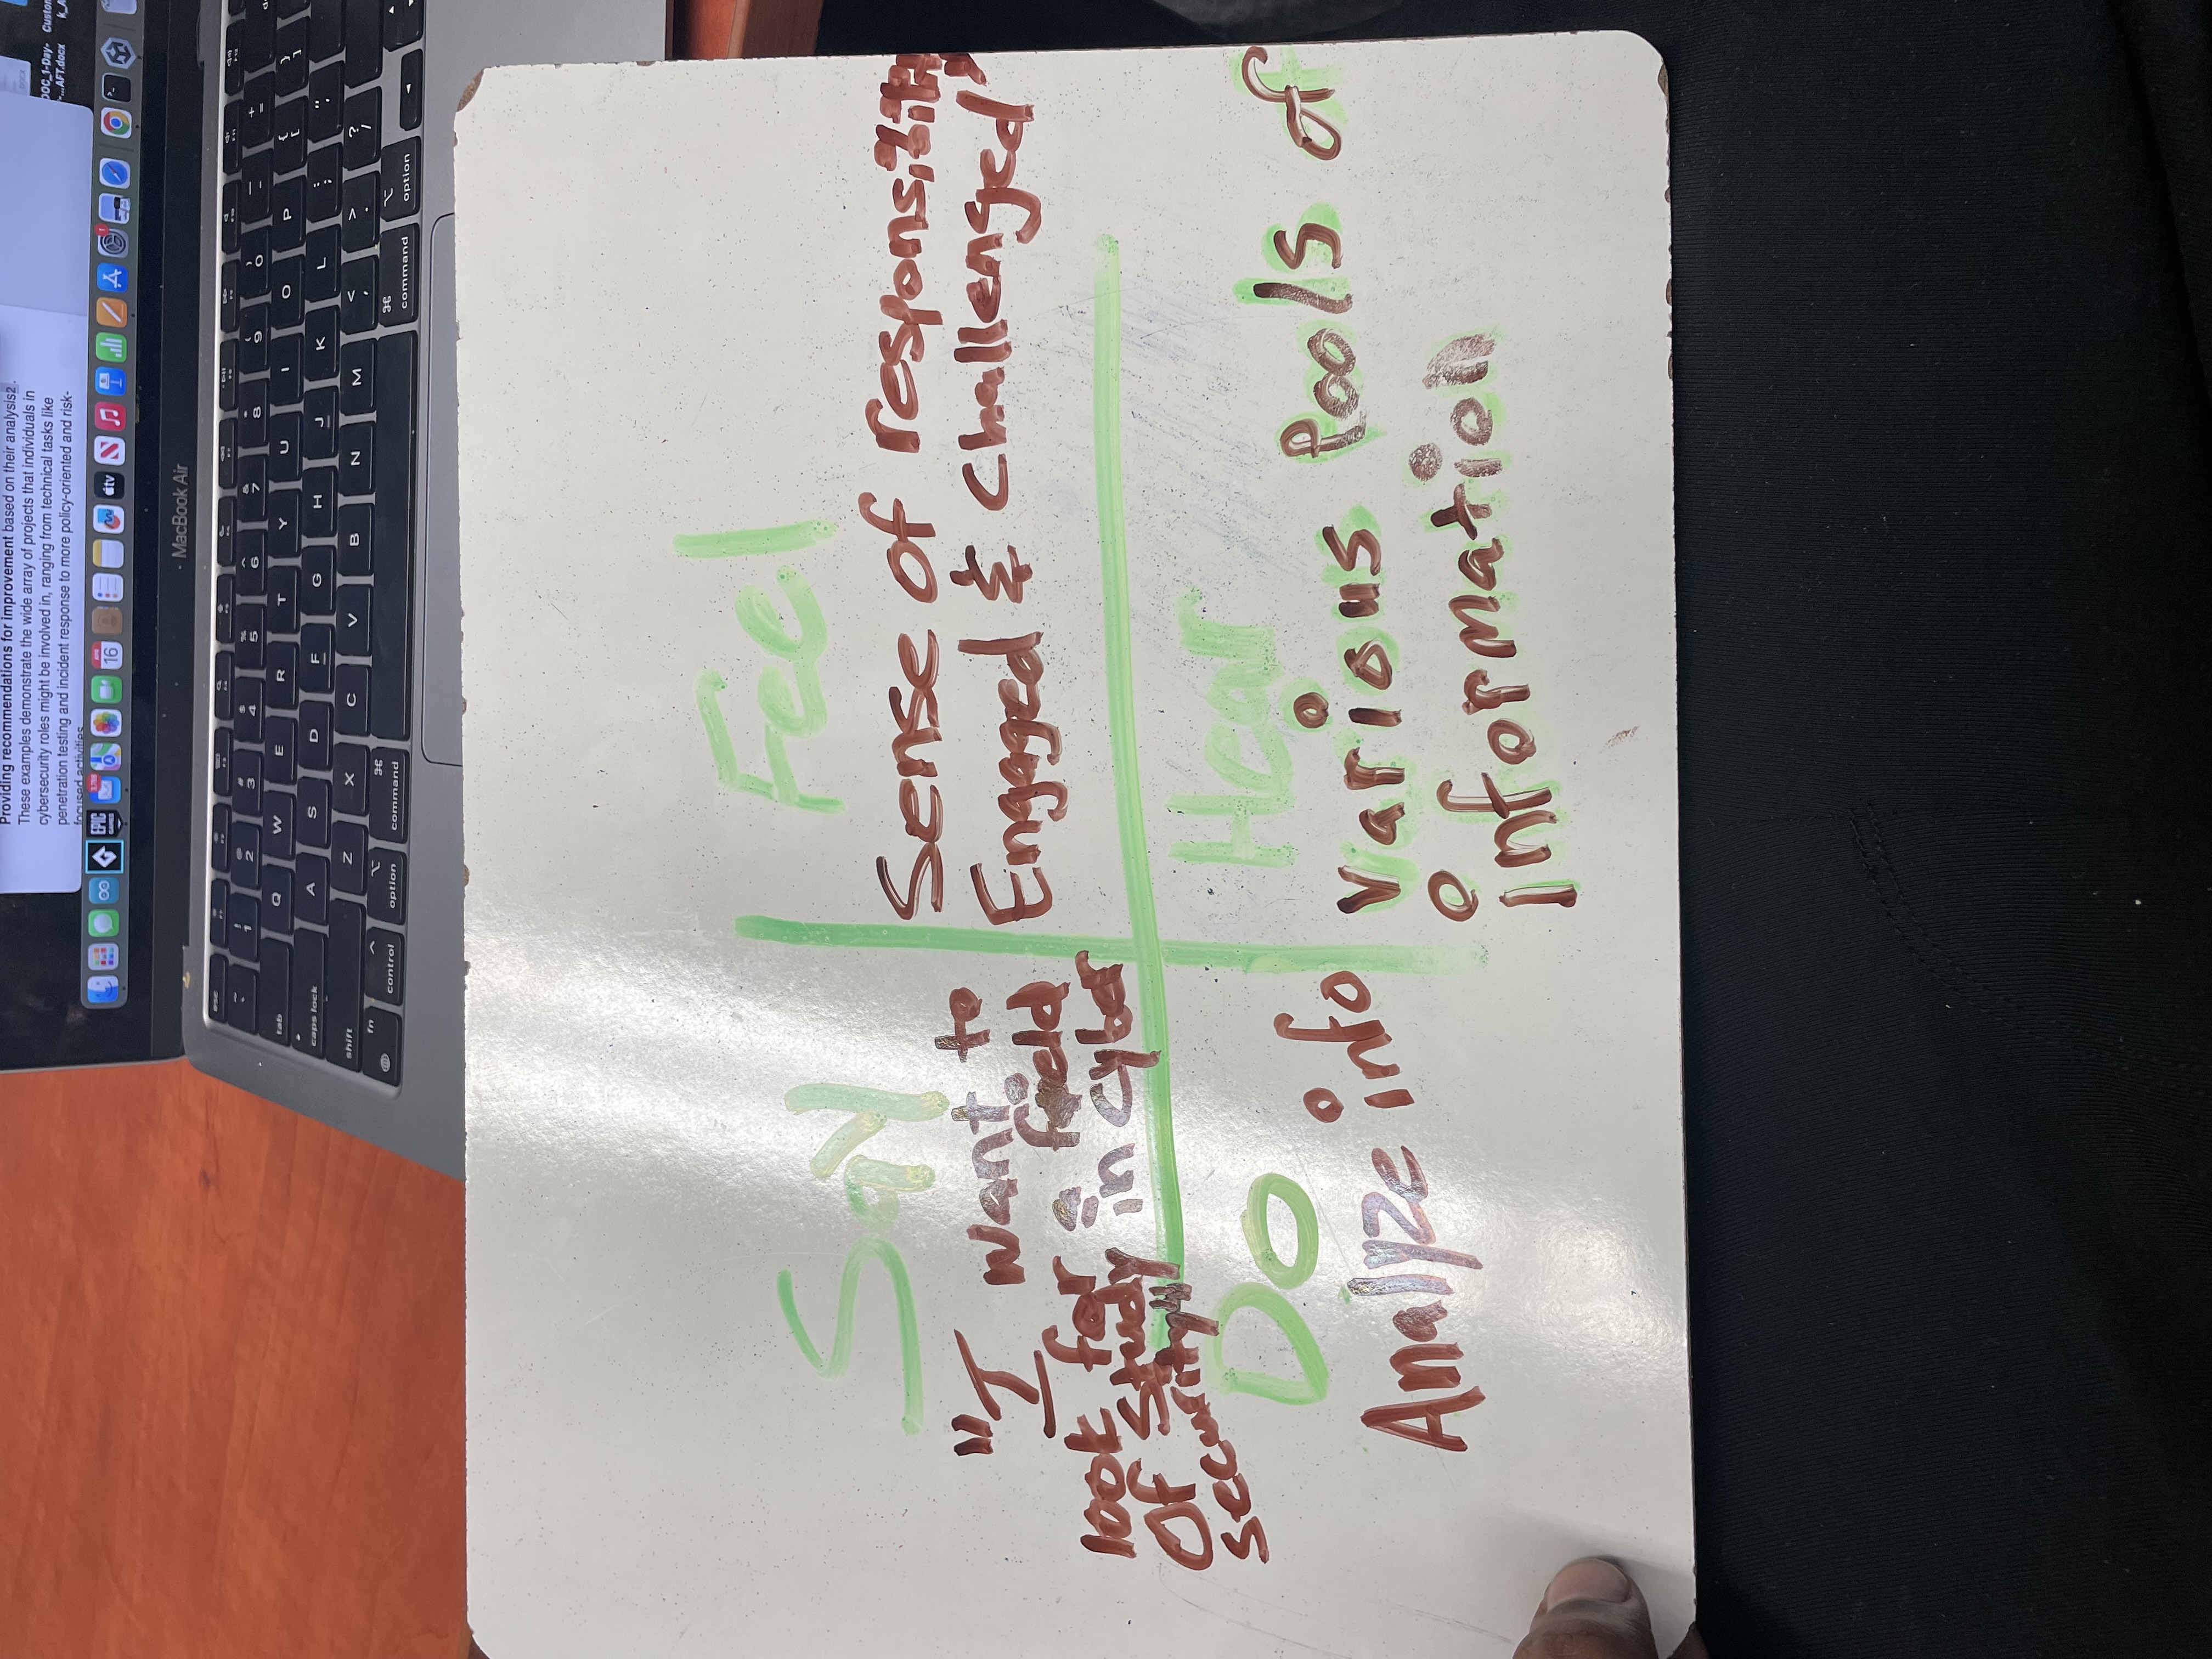 Providing recommendations for improvement based on their analysis2.
These examples demonstrate the wide array of projects that individuals in
cybersecurity roles might be involved in, ranging from technical tasks like
penetration testing and incident response to more policy-oriented and risk-
focused activities
OC_1-Day-
...AFT.docx
Custom
k_A
EPIC
GAMES
3,788
16
tv
1
MacBook Air
esc
F1
F2
F3
F4
F5
F6
F7
F8
F9
F10
F11
F12
~ ! 1 @ 2 # 3 $ 4 % 5 ^ 6 & 7 * 8 ( 9 ) 0 _ - + =
tab Q W E R T Y U I O P { [ } ]
caps lock A S D F G H J K L : ; " '
shift Z X C V B N M < , > . ? /
fn control option command command option
Say
"I want to
look for a field
Of Study in cyber
security"
Feel
Sense of responsibility
Engaged & Challenged"
Do
Analyze info
Hear
Various Pools of
information